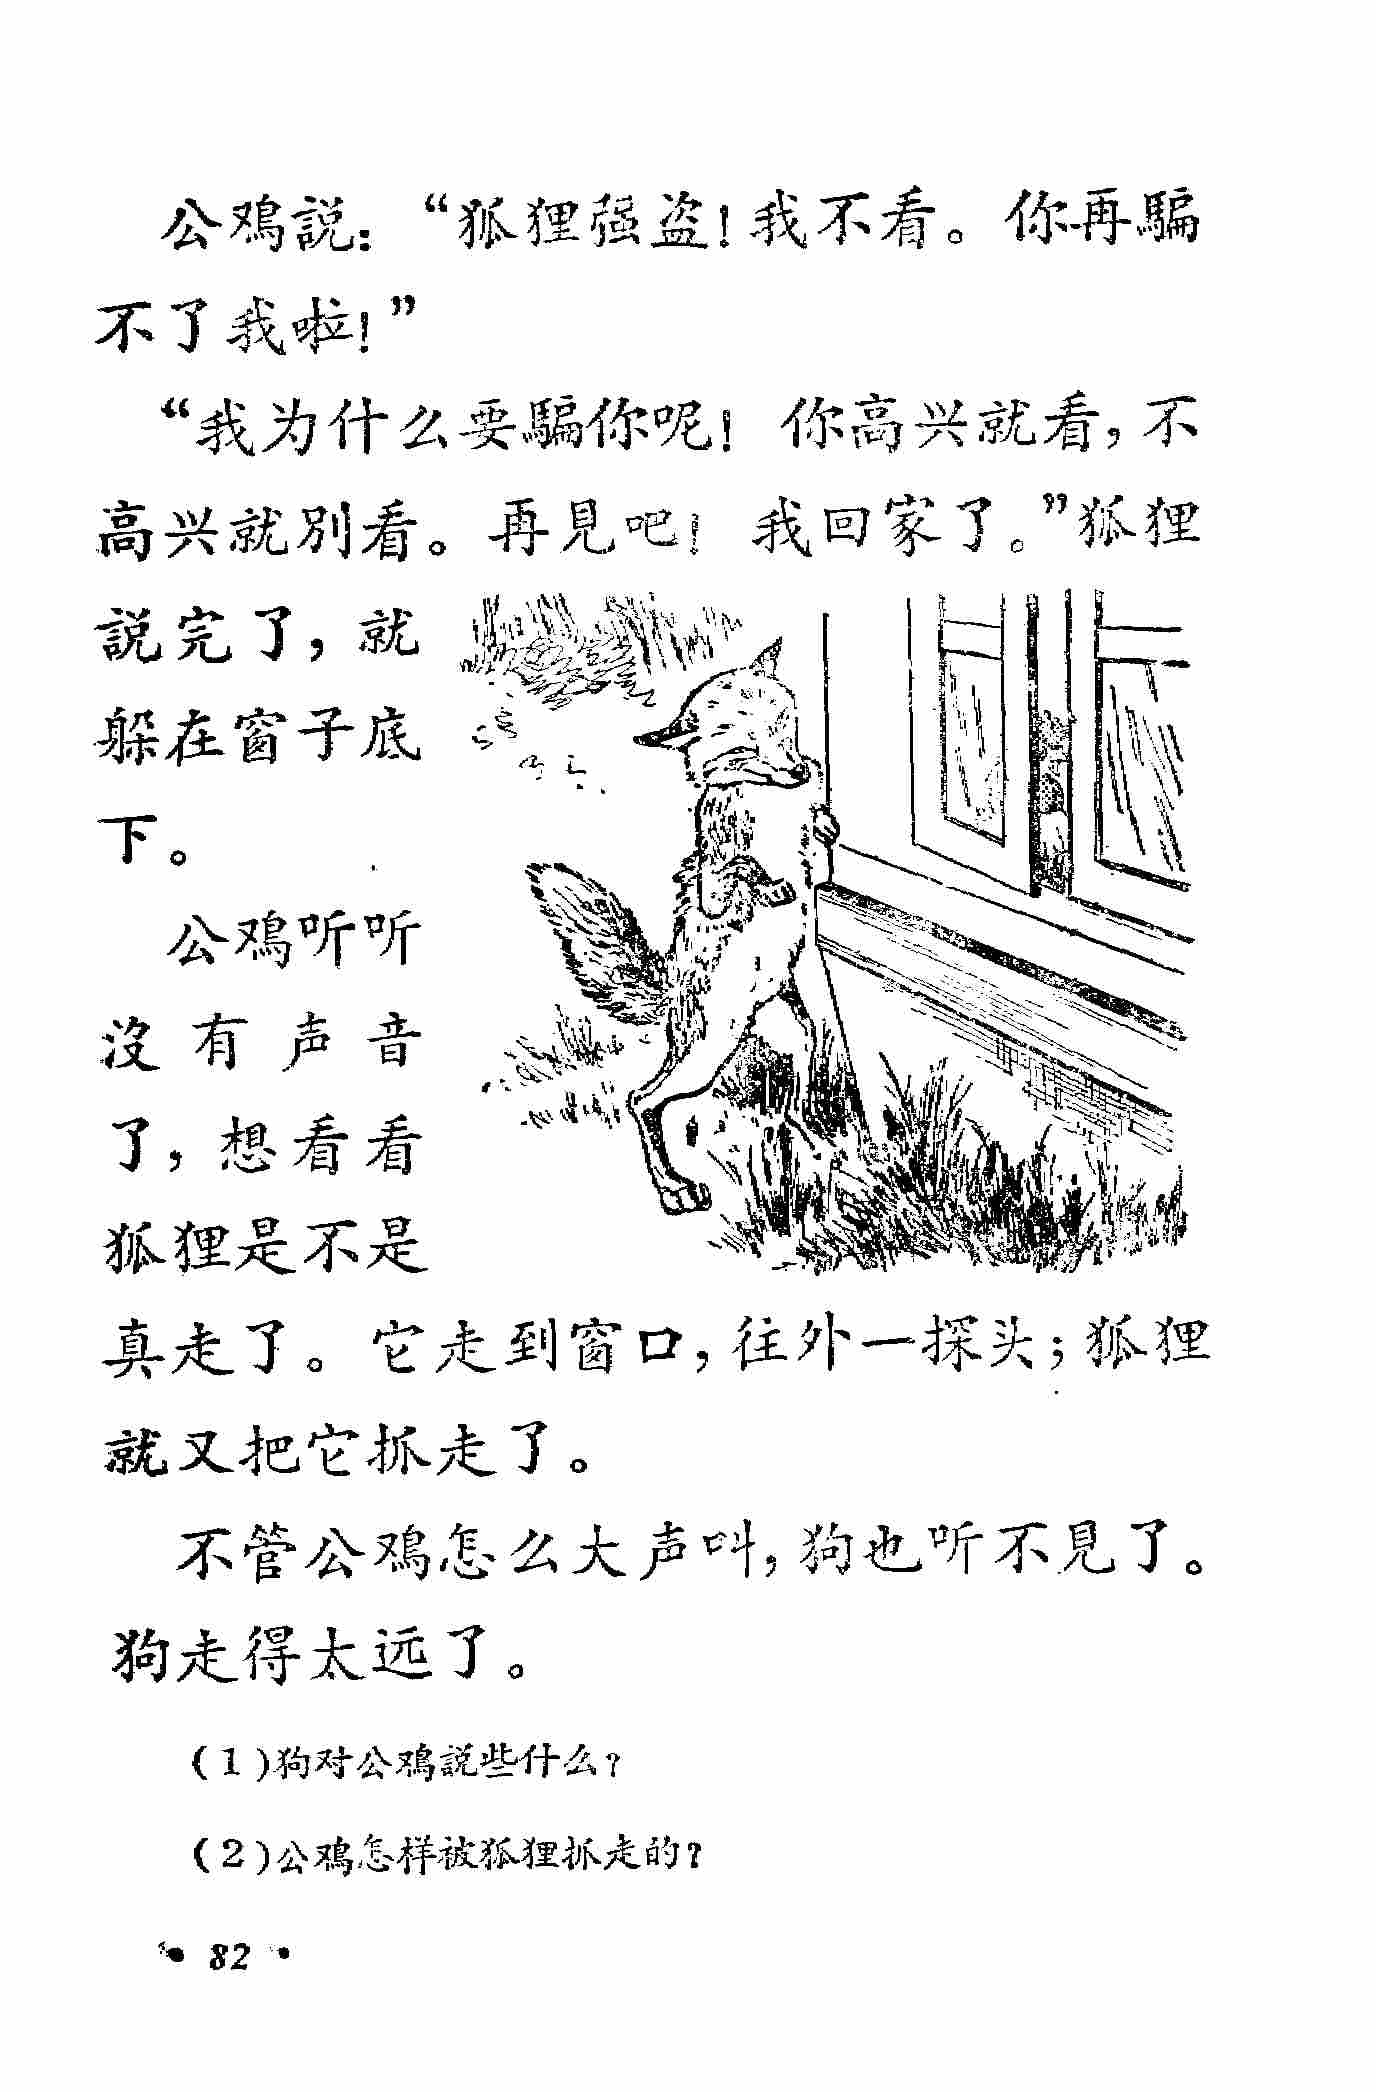 公鳮説：“狐狸强盗！我不看。你再騙
不了我啦！”
“我为什么要騙你呢！你高兴就看，不
高兴就別看。再見吧！我回家了。”狐狸
説完了，就
躲在窗子底
下。
公鳮听听
沒有声音
了，想看看
狐狸是不是
真走了。它走到窗口，往外一探头；狐狸
就又把它抓走了。
不管公鳮怎么大声叫，狗也听不見了。
狗走得太远了。
(1)狗对公鳮説些什么？
(2)公鳮怎样被狐狸抓走的？
• 82 •